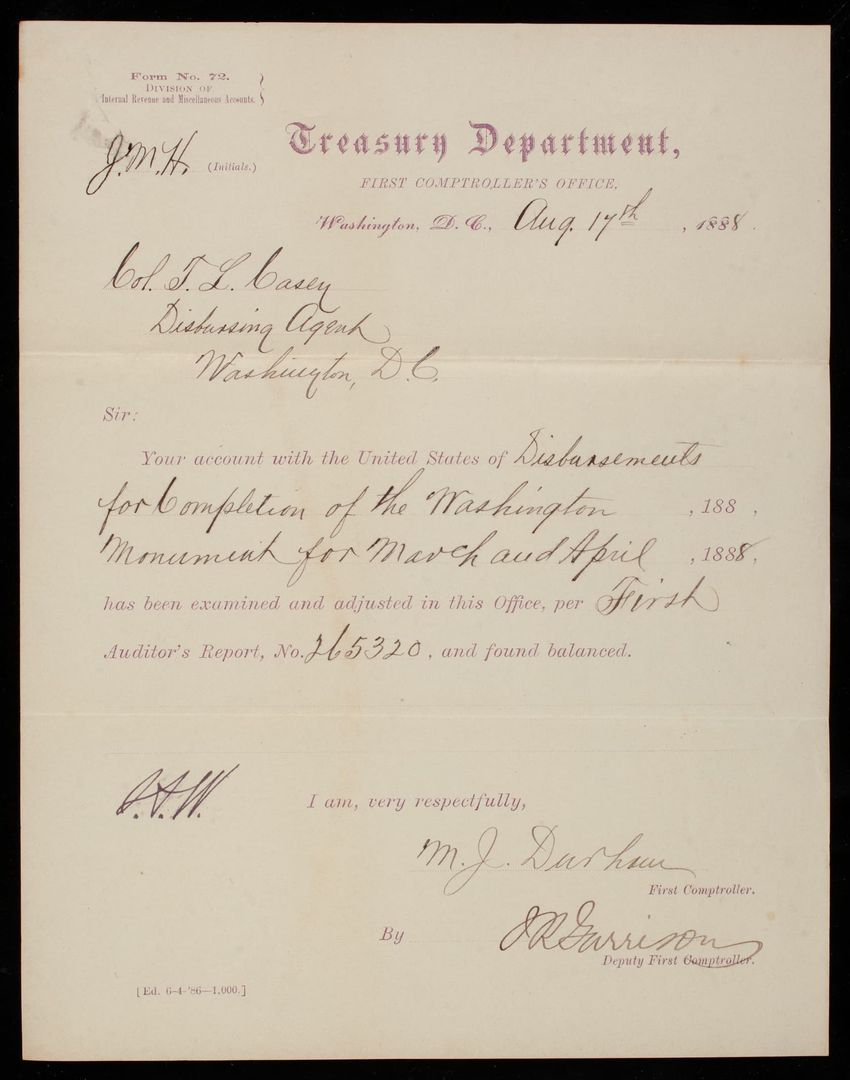 Form No. 72.
DIVISION OF
Internal Revenue and Miscellaneous Accounts.
J.M.H. (Initials.)
Treasury Department,
FIRST COMPTROLLER'S OFFICE,
Washington, D. C., Aug. 17th, 1888.
Col. T. L. Casey
Disbursing Agent
Washington, D.C.
Sir:
Your account with the United States of Disbursements
for Completion of the Washington , 188 ,
Monument for March and April , 1888,
has been examined and adjusted in this Office, per First
Auditor's Report, No. 265320, and found balanced.
I am, very respectfully,
M. J. Durham
First Comptroller.
By J R Garrison
Deputy First Comptroller.
[Ed. 6-4-'86—1,000.]